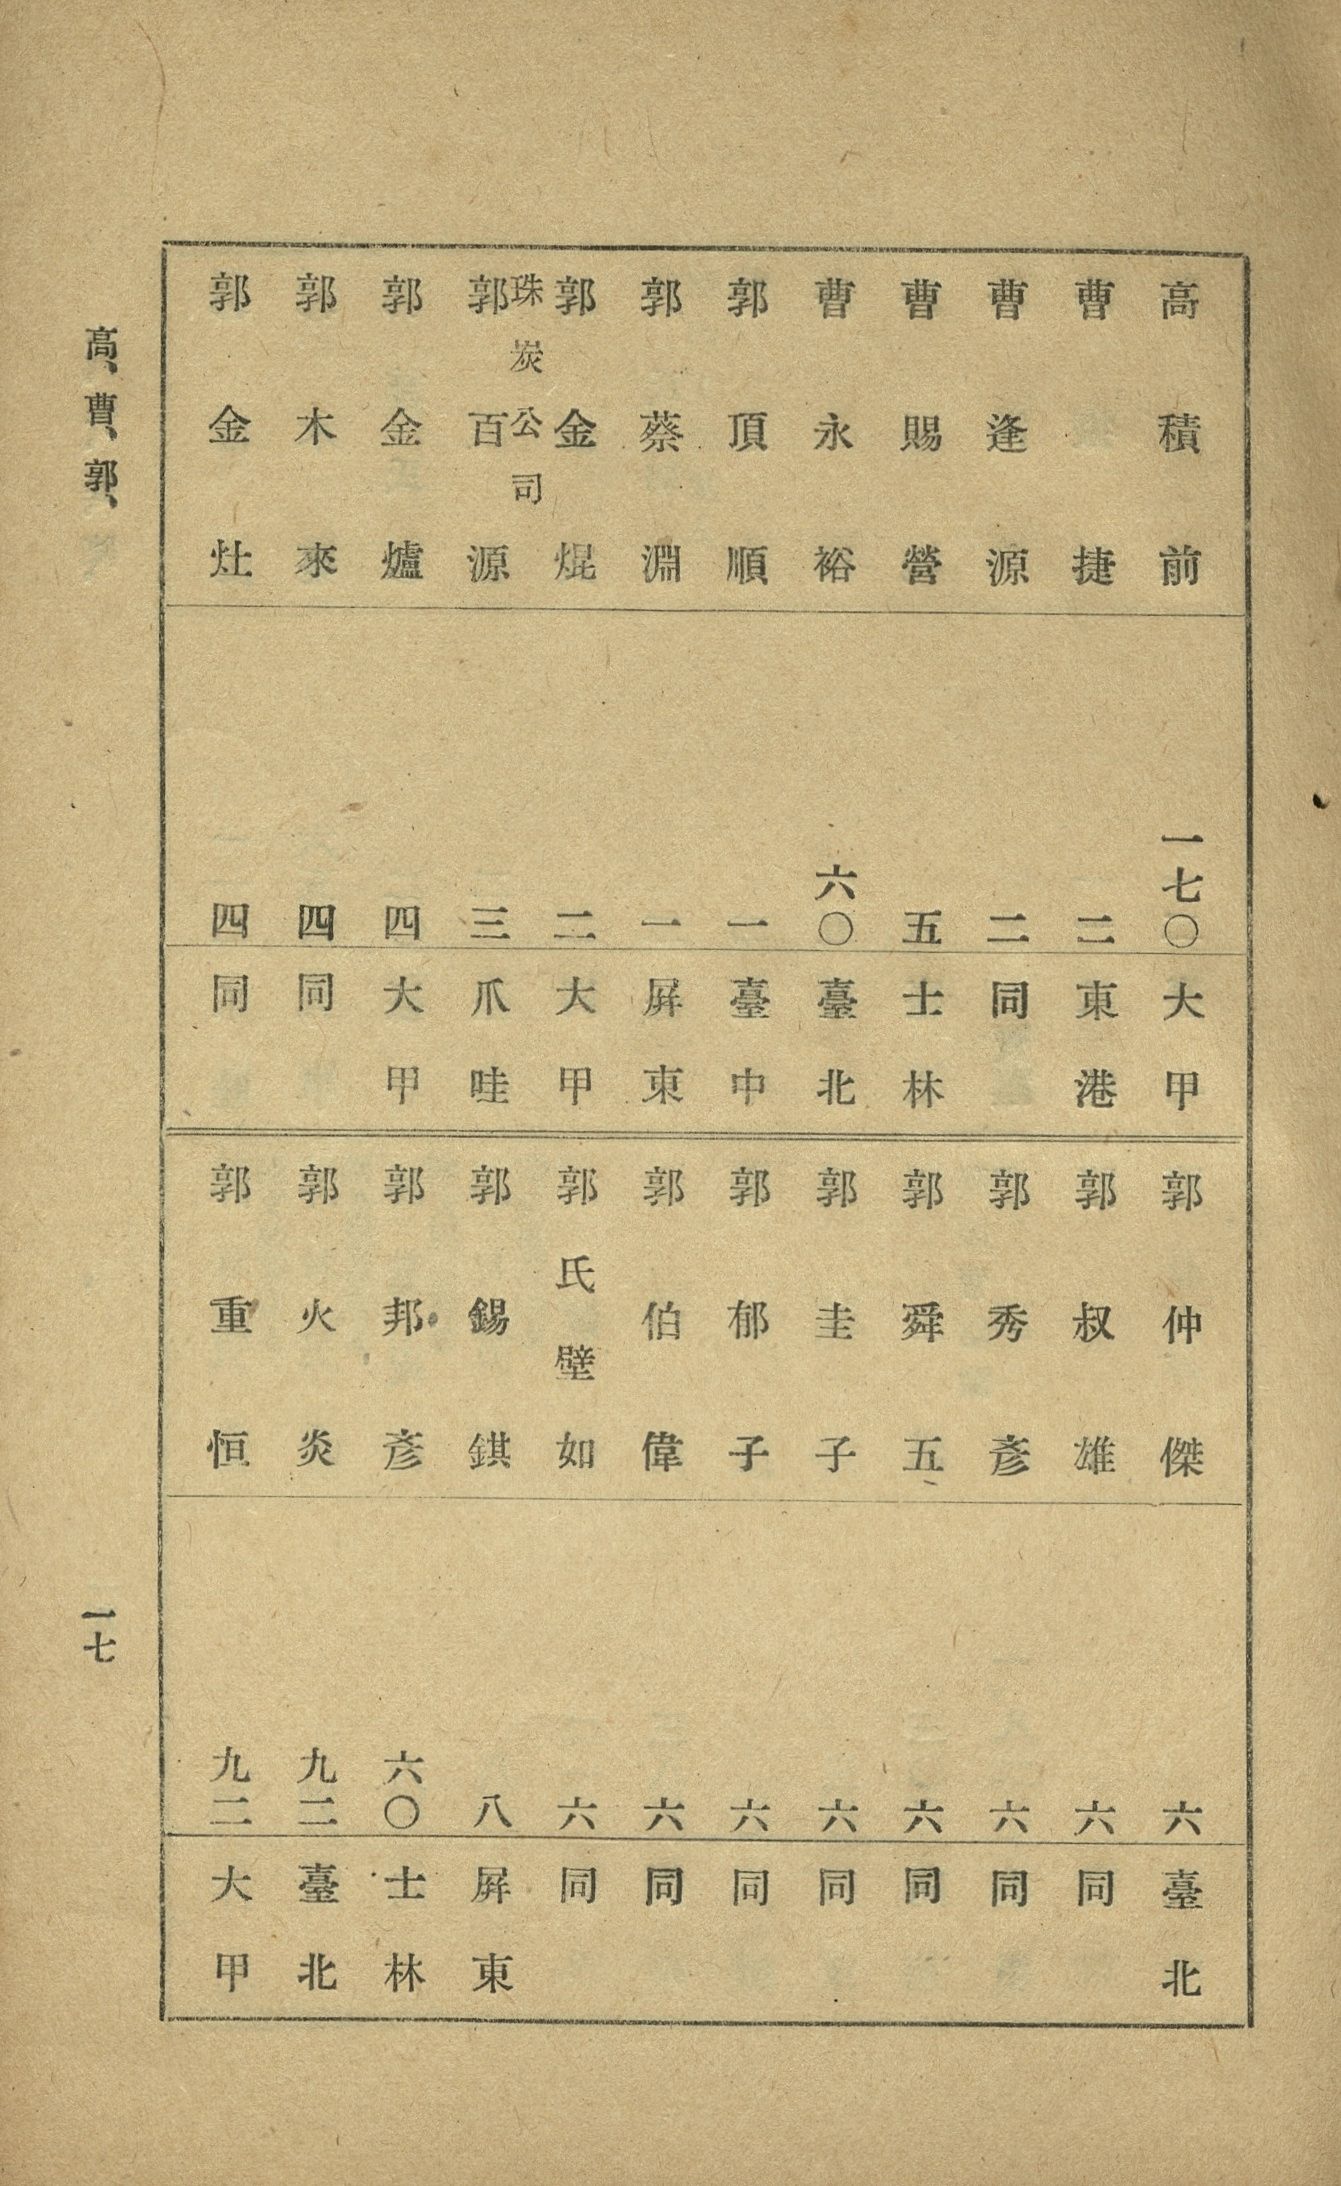 高積前 一七〇 大甲
曹捷 二 東港
曹逢源 二 同
曹賜營 五 士林
曹永裕 六〇 臺北
郭頂順 一 臺中
郭蔡淵 一 屏東
郭金焜 二 大甲
珠炭公司
郭百源 三 爪哇
郭金爐 四 大甲
郭木來 四 同
郭金灶 四 同
郭仲傑 六 臺北
郭叔雄 六 同
郭秀彥 六 同
郭舜五 六 同
郭圭子 六 同
郭郁子 六 同
郭伯偉 六 同
郭氏壁如 六 同
郭錫錤 八 屏東
郭邦彥 六〇 士林
郭火炎 九二 臺北
郭重恒 九二 大甲
高、曹、郭、
一七